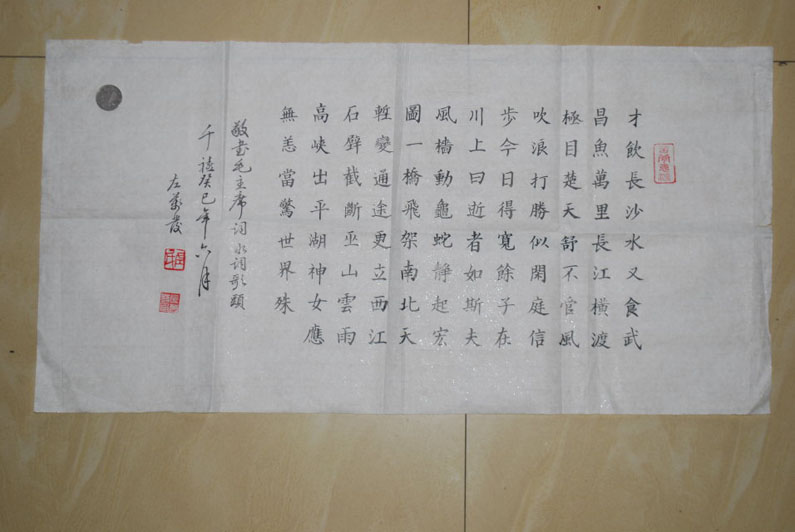 才飲長沙水又食武
昌魚萬里長江橫渡
極目楚天舒不官風
吹浪打勝似閑庭信
步今日得寬餘子在
川上曰逝者如斯夫
風檣動龜蛇靜起宏
圖一橋飛架南北天
塹變通途更立西江
石壁截斷巫山雲雨
高峽出平湖神女應
無恙當驚世界殊
敬書毛主席词水调歌頭
千禧癸巳年六月
左